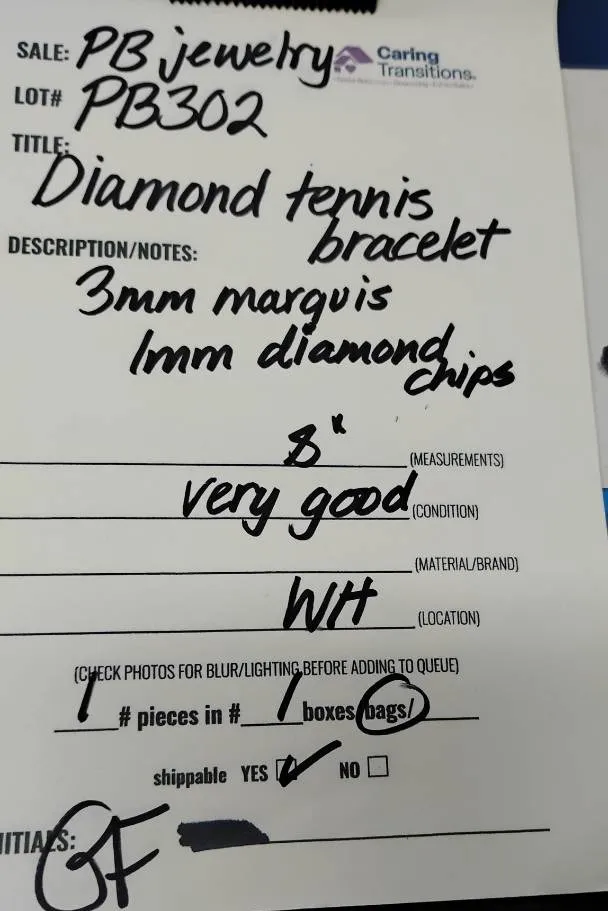 SALE: PB jewelry
Caring
Transitions.
LOT# PB302
TITLE:
Diamond tennis
bracelet
DESCRIPTION/NOTES:
3mm marquis
1mm diamond
chips
8" (MEASUREMENTS)
very good (CONDITION)
(MATERIAL/BRAND)
WH (LOCATION)
(CHECK PHOTOS FOR BLUR/LIGHTING BEFORE ADDING TO QUEUE)
1 # pieces in # 1 boxes/bags/
shippable YES ✓ NO
NITIALS: